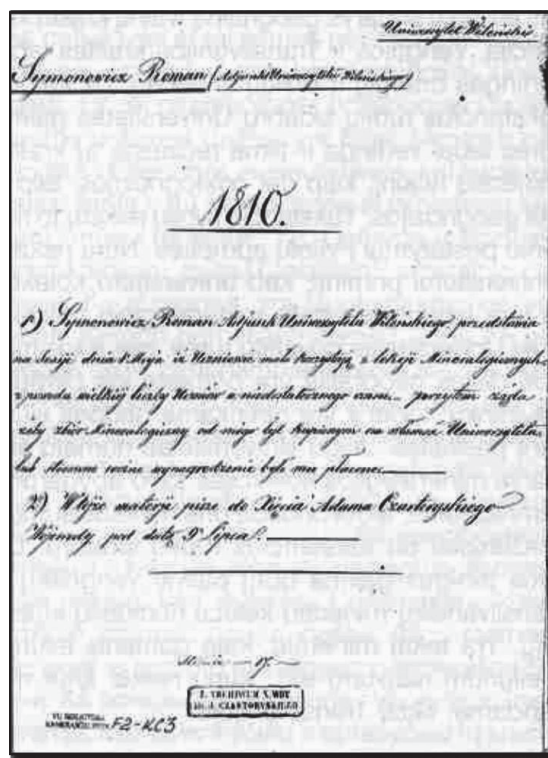 Uniwersytet Wileński
Symonowicz Roman (Adjunkt Uniwersytetu Wileńskiego)
1810.
1) Symonowicz Roman Adjunkt Uniwersytetu Wileńskiego, przedstawia
na Sesji dnia 1 Maja iż Uczniowie mało korzystają z lekcji Mineralogicznych
z powodu wielkiej liczby Uczniów a niedostatecznego czasu przytem żąda
żeby zbiór Mineralogiczny od niego był kupionym na własność Uniwersytetu
lub słuszne roczne wynagrodzenie było mu płacone.
2) W tejże materji pisze do Xięcia Adama Czartoryskiego
pod datą 9 Lipca.
17.
Z ARCHIWUM X. WDY
AD. J. CZARTORYSKIEGO
VU BIBLIOTEKA
F2-KC3